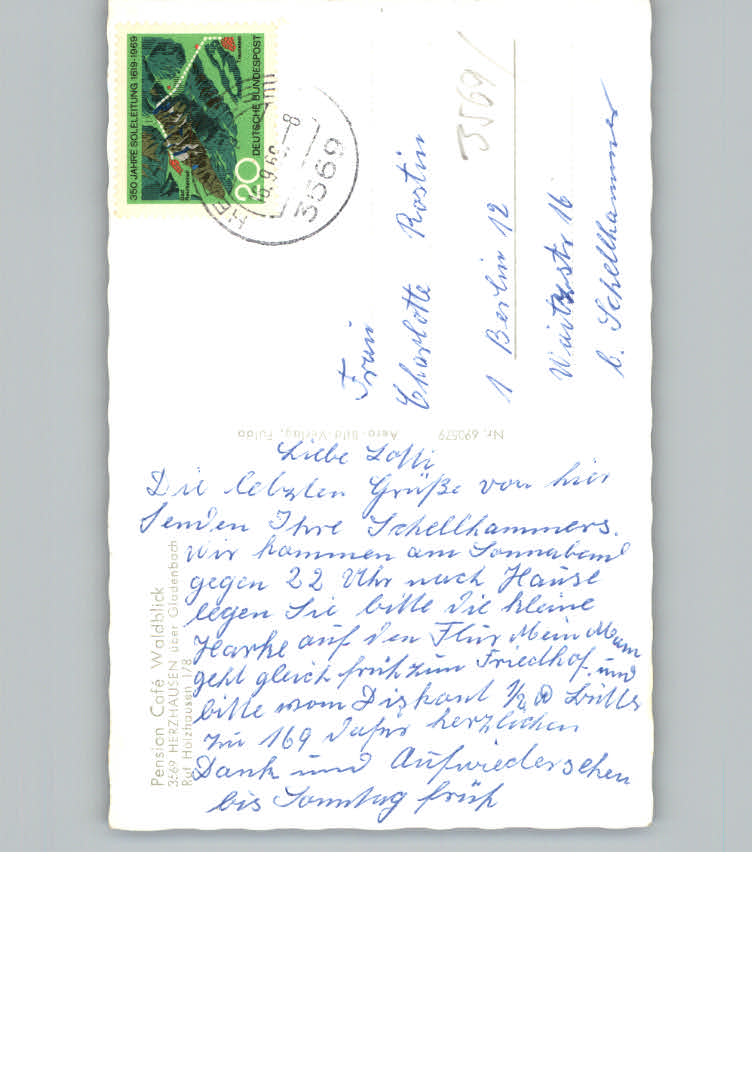 Liebe Lotti
Die letzten Grüße von hier
Senden Ihre Schellhammers.
Wir kommen am Sonnabend
gegen 22 Uhr nach Hause
legen Sie bitte die kleine
Harke auf den Flur Mein Mann
geht gleich früh zum Friedhof. und
bitte vom Diskont ½ Butter
zu 169 dafür herzlichen
Dank und Aufwiedersehen
bis Sonntag früh
Pension Café Waldblick
3569 HERZHAUSEN über Gladenbach
Ruf Holzhausen 178
Nr. 690579 Aero-Bild-Verlag, Fulda
Frau
Charlotte Rostin
1 Berlin 12
Waitzstr 16
b. Schellhammer
3569/
350 JAHRE SOLELEITUNG 1619-1969
DEUTSCHE BUNDESPOST
20
3569